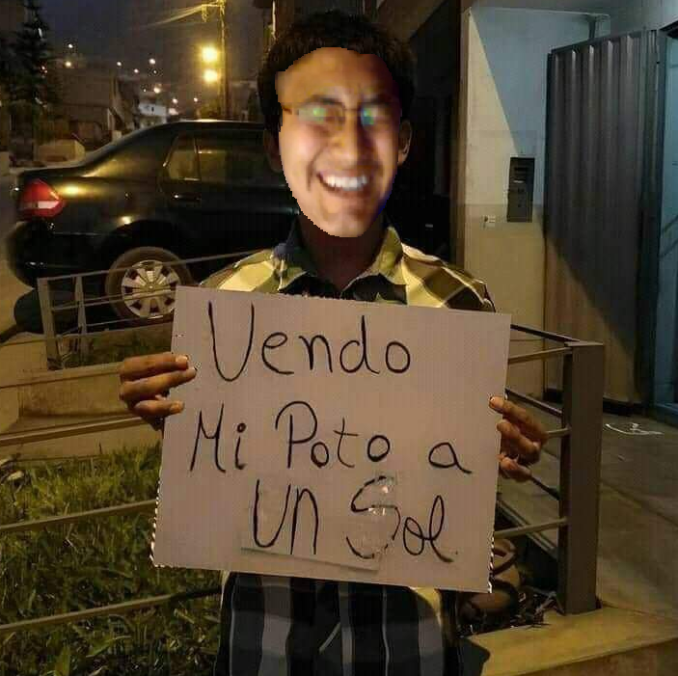 Vendo
Mi Poto a
Un Sol